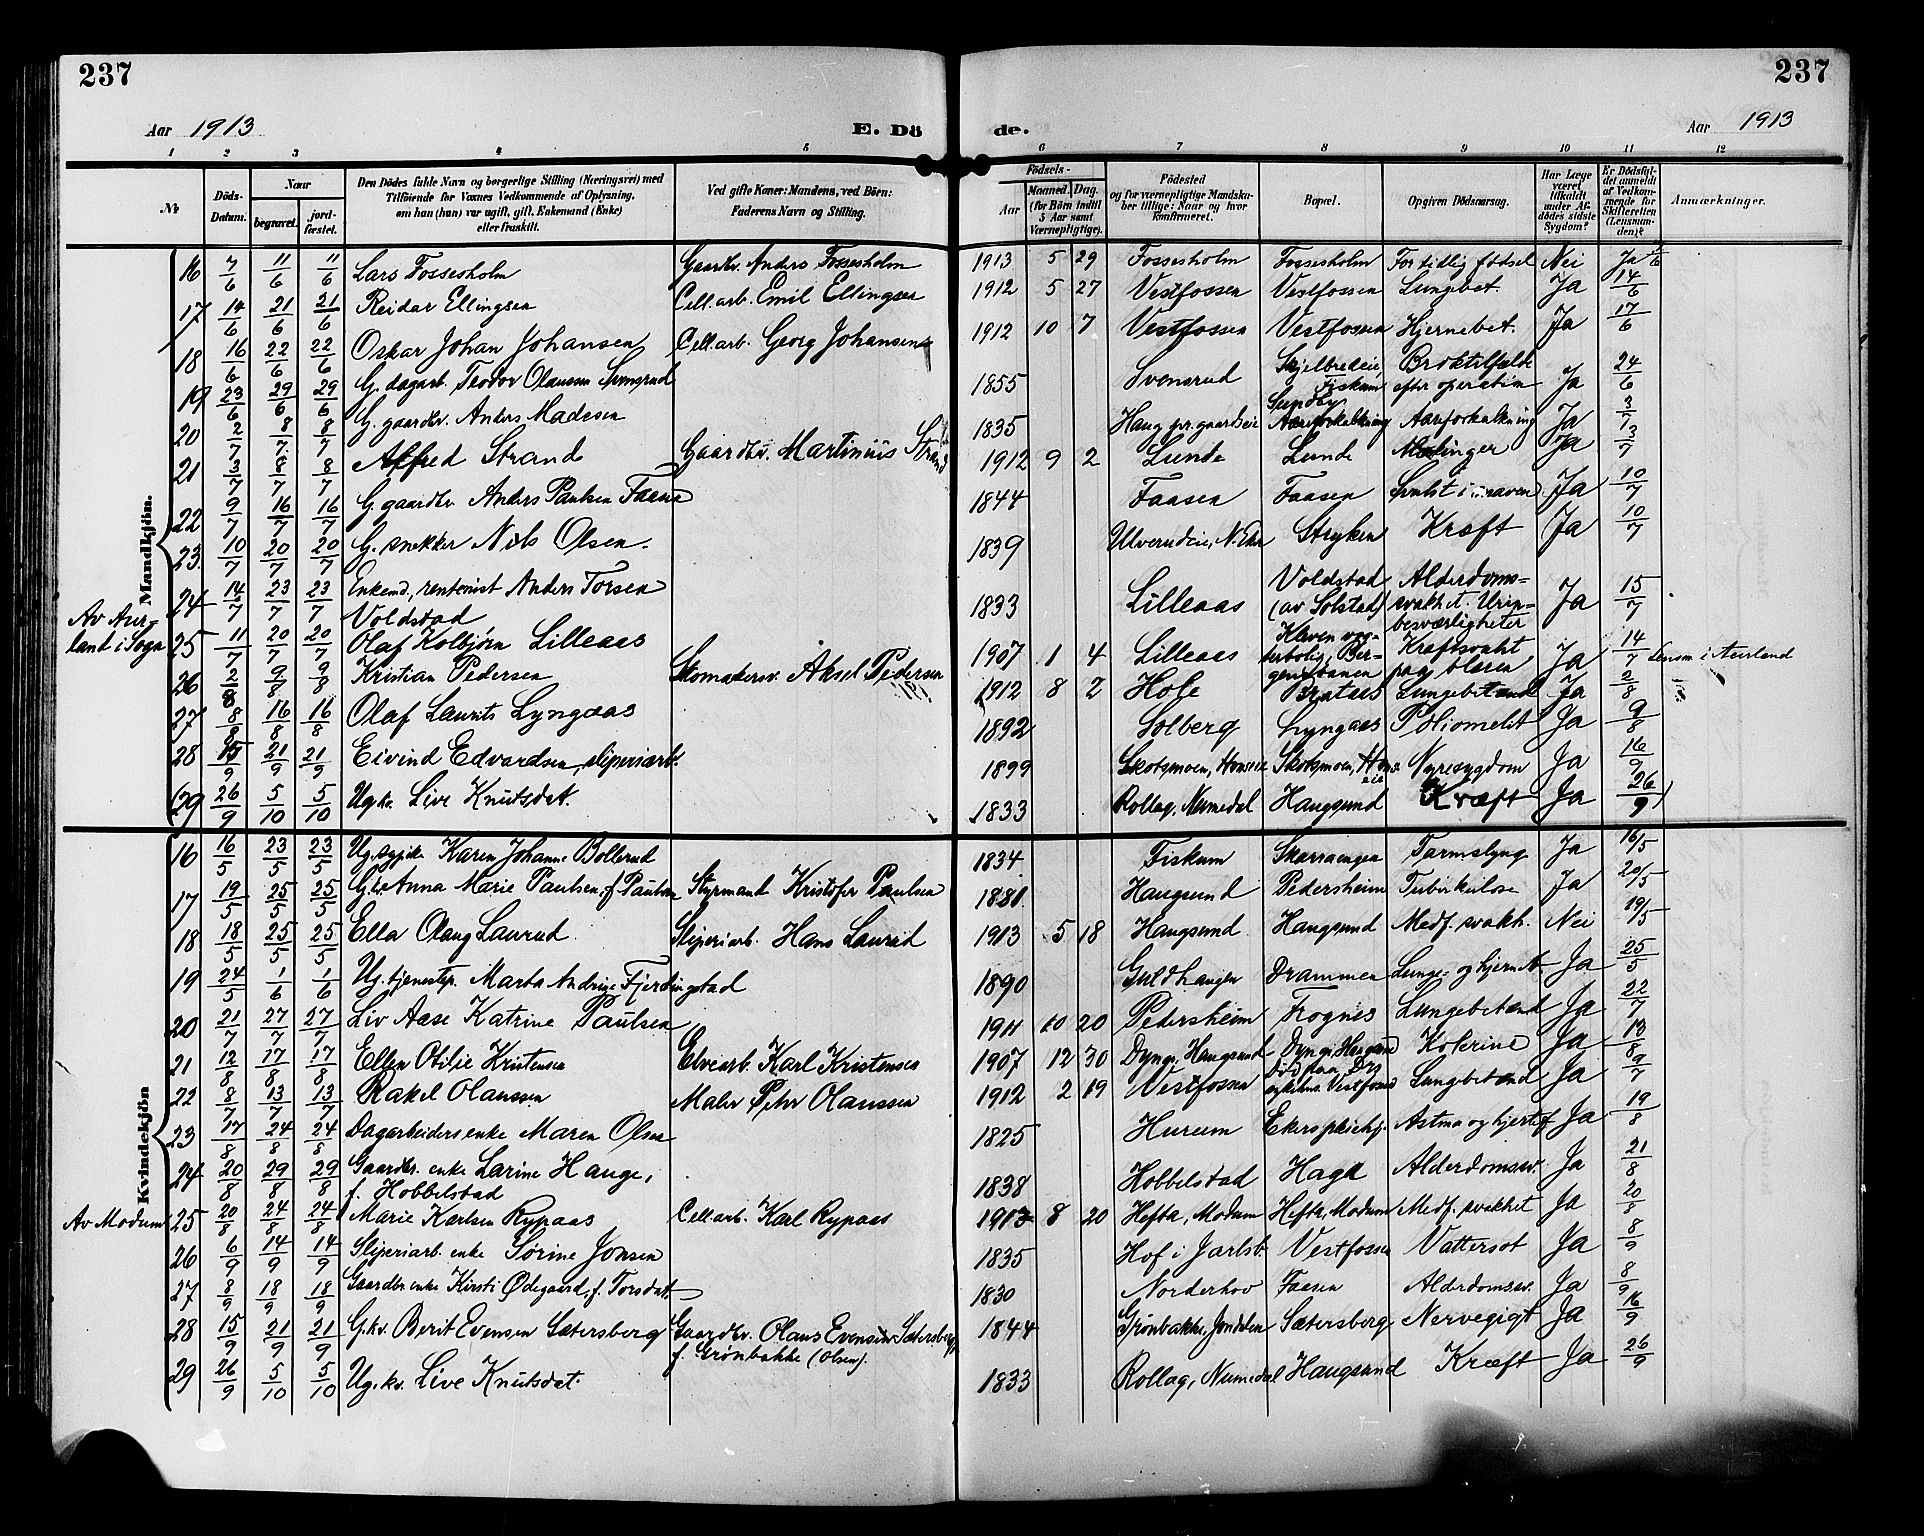 237
237
Aar 1913
E. Dö
de.
Aar 1913
1 2 3 4 5 6 7 8 9 10 11 12
№
Döds-Datum.
Naar
begravet.
jord-fæstet.
Den Dödes fulde Navn og borgerlige Stilling (Næringsvei) med
Tilföiende for Voxnes Vedkommende af Oplysning,
om han (hun) var ugift, gift, Enkemand (Enke)
eller fraskilt.
Ved gifte Koner: Mandens, ved Börn:
Faderens Navn og Stilling.
Födsels-
Aar
Maaned. Dag.
(for Börn indtil
5 Aar samt
Værnepligtige).
Födested
og for værnepligtige Mandska-
ber tillige: Naar og hvor
konfirmeret.
Bopæl.
Opgiven Dödsaarsag.
Har Læge
været
tilkaldt
under Af-
dödes sidste
Sygdom?
Er Dödsfal-
det anmeldt
af Vedkom-
mende for
Skifteretten
(Lensman-
den)?
Anmærkninger.
Mandkjön.
16 7/6 11/6 11/6 Lars Fossesholm Gaardbr. Anders Fossesholm 1913 5 29 Fossesholm Fossesholm For tidlig fødsel Nei Ja
17 14/6 21/6 21/6 Reidar Ellingsen Cell.arb. Emil Ellingsen 1912 5 27 Vestfossen Vestfossen Lungebet. Ja 14/6
18 16/6 22/6 22/6 Oskar Johan Johansen Cell.arb. Georg Johansen 1912 10 7 Vestfossen Vestfossen Hjernebet. Ja 17/6
19 23/6 29/6 29/6 G. dagarb. Teodor Olaussen 1855 Svensrud Skjelbredeie, Fiskum Broktilfælde efter operation Ja 24/6
20 2/7 8/7 8/7 G. gaardbr. Anders Madesen 1835 Haug pr.gaardeie Sundby Aareforkalkning Aareforkalkning Ja 3/7
21 3/7 8/7 8/7 Alfred Strand Gaardbr. Martinius Strand 1912 9 2 Lunde Lunde Ja 3/7
22 9/7 16/7 16/7 G. gaardbr Anders Paulsen Faasen 1844 Faasen Faasen i maven Ja 10/7
23 10/7 20/7 20/7 G. snekker Nils Olsen. 1839 Ulverudeie, N. Eker Stryken Kræft Ja 10/7
24 14/7 23/7 23/7 Enkemd, rentenist Anders Torsen Voldstad 1833 Lilleaas Voldstad (av Solstad) Alderdoms- svakhet. Urin- besværligheter Ja 15/7
Av Aur-
land i Sogn
25 11/7 20/7 20/7 Olaf Kolbjørn Lilleaas 1907 1 4 Lilleaas Kleven vog- terbolig, Ber- gensbanen Kræftsvulst paa blæren Ja 14/7 Lensm i Aurland
26 2/8 9/8 9/8 Kristian Pedersen Skomakersv. Aksel Pedersen 1912 8 2 Hole Brataas Lungebetænd Ja 2/8
27 8/8 16/8 16/8 Olaf Laurits Lyngaas 1892 Solberg Lyngaas Poliomelit Ja 9/8
28 15/9 21/9 21/9 Eivind Edvardsen, sliperiarb. 1899 Skotsmoen, Honseie Skotsmoen, Honseie Nyresygdom Ja 16/9
(29 26/9 5/10 5/10 Ug.kv. Live Knutsdat. 1833 Rollag, Numedal Haugsund Kræft Ja 26/9)
Kvindekjön
16 16/5 23/5 23/5 Ug. Karen Johanne Bollerud 1834 Fiskum Skarraengen Tarmslyng Ja 16/5
17 19/5 25/5 25/5 Anna Marie Paulsen, f. Paulsen Styrmand Kristofer Paulsen 1881 Haugsund Pedersheim Tuberkulose Ja 20/5
18 18/5 25/5 25/5 Ella Olaug Laurud Sliperiarb. Hans Laurud 1913 5 18 Haugsund Haugsund Medf. svakh. Nei 19/5
19 24/5 1/6 1/6 Ug. tjenestp. Marta Andrine Fjerdingstad 1890 Guldhaugen Drammen Lunge- og hjernebt. Ja 25/5
20 21/7 27/7 27/7 Liv Aase Katrine Paulsen 1911 10 20 Pedersheim Frognes Lungebetænd Ja 22/7
21 12/8 17/8 17/8 Ellen Otilie Kristensen Elvearb. Karl Kristensen 1907 12 30 Dynge, Haugsund Dynge, Haugsund Kolerine Ja 13/8
22 8/7 13/7 13/7 Rakel Olaussen Maler Petter Olaussen 1912 2 19 Vestfossen Død paa sykehus. Vestfossen Lungebetænd Ja 9/7
23 17/8 24/8 24/8 Dagarbeiders enke Maren Olsen 1825 Hurum Ekers pleiehj. Astma og hjertef. Ja 19/8
24 20/8 29/8 29/8 Gaardbr. enke Larine Hauge, f. Hobbelstad 1838 Hobbelstad Haga Alderdomssv. Ja 21/8
Av Modum
25 20/8 24/8 24/8 Marie Karlsen Rypaas Cell.arb. Karl Rypaas 1913 8 20 Hefta, Modum Hefta, Modum Medf. svakhet Ja 20/8
26 6/9 14/9 14/9 Sliperiarb. enke Sørine Jonsen 1835 Hof i Jarlsb. Vestfossen Vattersot Ja 8/9
27 8/9 18/9 18/9 Gaardbr. enke Kirsti Ødegaard, f. Torsdat. 1830 Norderhov Faasen Alderdomssv. Ja 8/9
28 15/9 21/9 21/9 G.kv. Berit Evensen Sætersberg f. Grønbakke (Olsen). Gaardbr. Olaus Evensen Sætersberg 1844 Grønbakke, Jondalen Sætersberg Nervegigt Ja 16/9
29 26/9 5/10 5/10 Ug.kv. Live Knutsdat. 1833 Rollag, Numedal Haugsund Kræft Ja 26/9